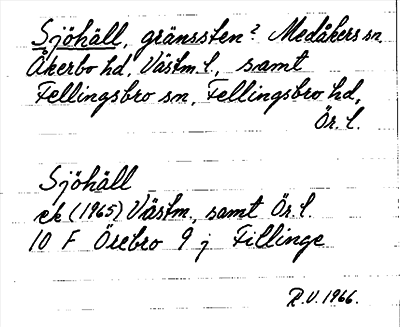 Sjöhäll, gränssten? Medåkers sn,
Åkerbo hd, Västm. l., samt
Fellingsbro sn, Fellingsbro hd,
Ör. l.
Sjöhäll
ek (1965) Västm., samt Ör. l.
10 F Örebro 9 j Fillinge
R.V. 1966.